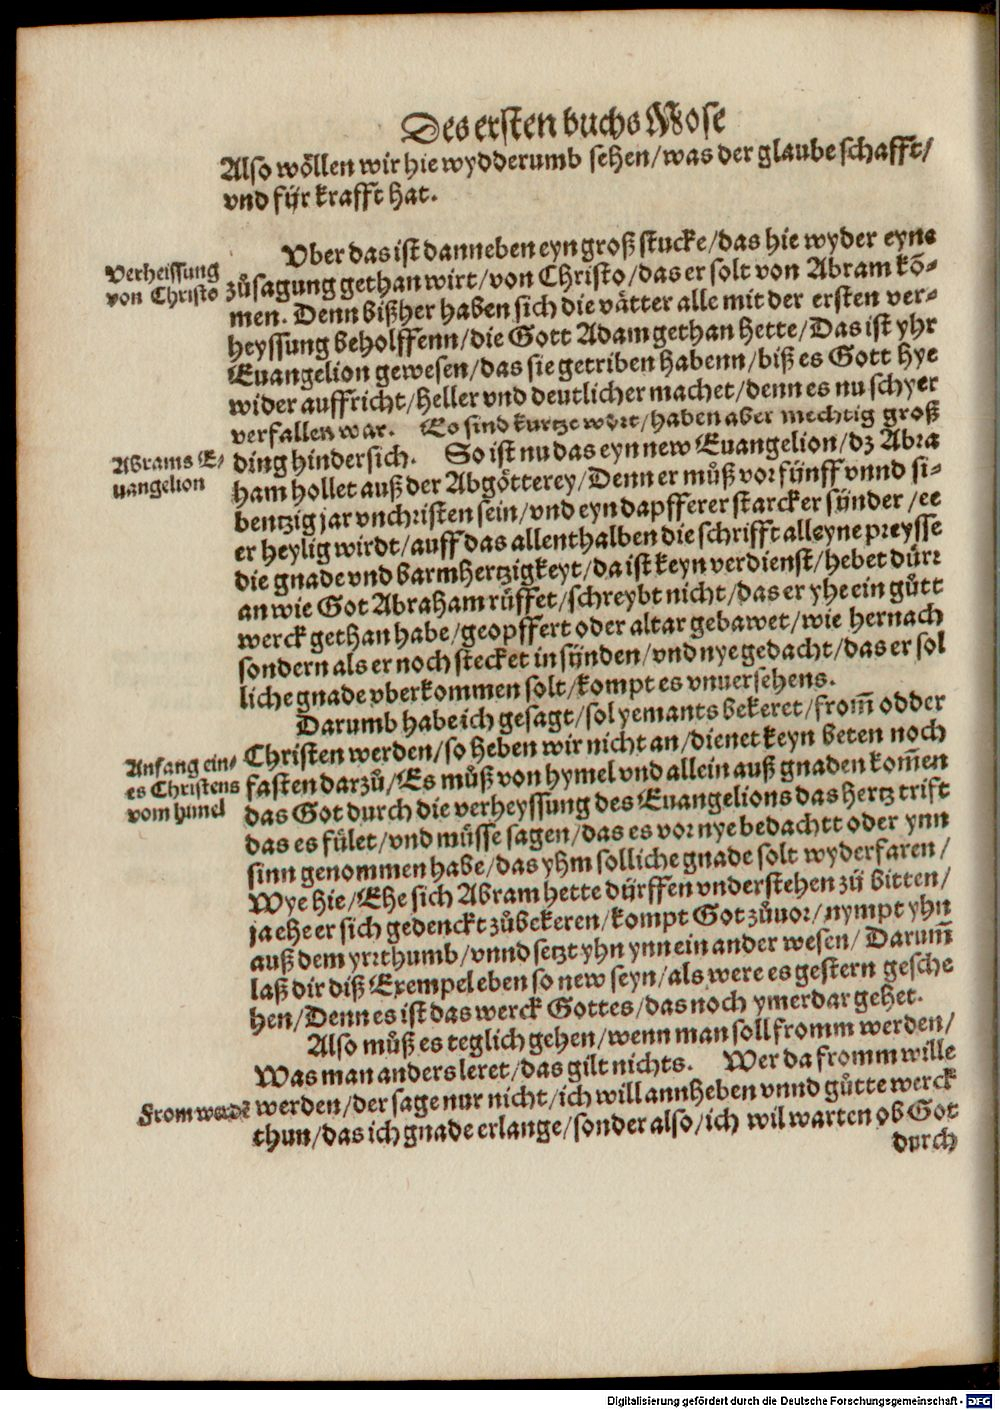 Des ersten buchs Mose
Also wöllen wir hie wydderumb sehen/was der glaube schafft/
vnd für krafft hat.
Vber das ist danneben eyn groß stucke/das hie wyder eyne
Verheissung
von Christo
zůsagung gethan wirt/von Christo/das er solt von Abram kō-
men. Denn bißher haben sich die vätter alle mit der ersten ver-
heyssung beholffenn/die Gott Adam gethan hette/Das ist yhr
Euangelion gewesen/das sie getriben habenn/biß es Gott hye
wider auffricht/heller vnd deutlicher machet/denn es nu schyer
verfallen war. Es sind kurtze wort/haben aber mechtig groß
Abrams E-
uangelion
ding hindersich. So ist nu das eyn new Euangelion/dz Abra
ham hollet auß der Abgötterey/Denn er můß vor fünff vnnd si-
bentzig jar vnchristen sein/vnd eyn dapfferer starcker sünder/ee
er heylig wirdt/auff das allenthalben die schrifft alleyne preysse
die gnade vnd barmhertzigkeyt/da ist keyn verdienst/hebet dürr
an wie Got Abraham rüffet/schreybt nicht/das er yhe ein gůtt
werck gethan habe/geopffert oder altar gebawet/wie hernach
sondern als er noch stecket in sünden/vnd nye gedacht/das er sol
liche gnade vberkommen solt/kompt es vnuersehens.
Darumb habe ich gesagt/sol yemants bekeret/from̄ odder
Anfang ein-
es Christens
vom himel
Christen werden/so heben wir nicht an/dienet keyn beten noch
fasten darzů/Es můß von hymel vnd allein auß gnaden kom̄en
das Got durch die verheyssung des Euangelions das hertz trift
das es fület/vnd müsse sagen/das es vor nye bedachtt oder ynn
sinn genommen habe/das yhm solliche gnade solt wyderfaren/
Wye hie/Ehe sich Abram hette dürffen vnderstehen zü bitten/
ja ehe er sich gedenckt zůbekeren/kompt Got zůuor/nympt yhn
auß dem yrrthumb/vnnd setzt yhn ynn ein ander wesen/Darum̄
laß dir diß Exempel eben so new seyn/als were es gestern gesche
hen/Denn es ist das werck Gottes/das noch ymerdar gehet.
Also můß es teglich gehen/wenn man soll fromm werden/
Was man anders leret/das gilt nichts. Wer da fromm wille
From werdē
werden/der sage nur nicht/ich will annheben vnnd gůtte werck
thun/das ich gnade erlange/sonder also/ich wil warten ob Got
durch
Digitalisierung gefördert durch die Deutsche Forschungsgemeinschaft - DFG